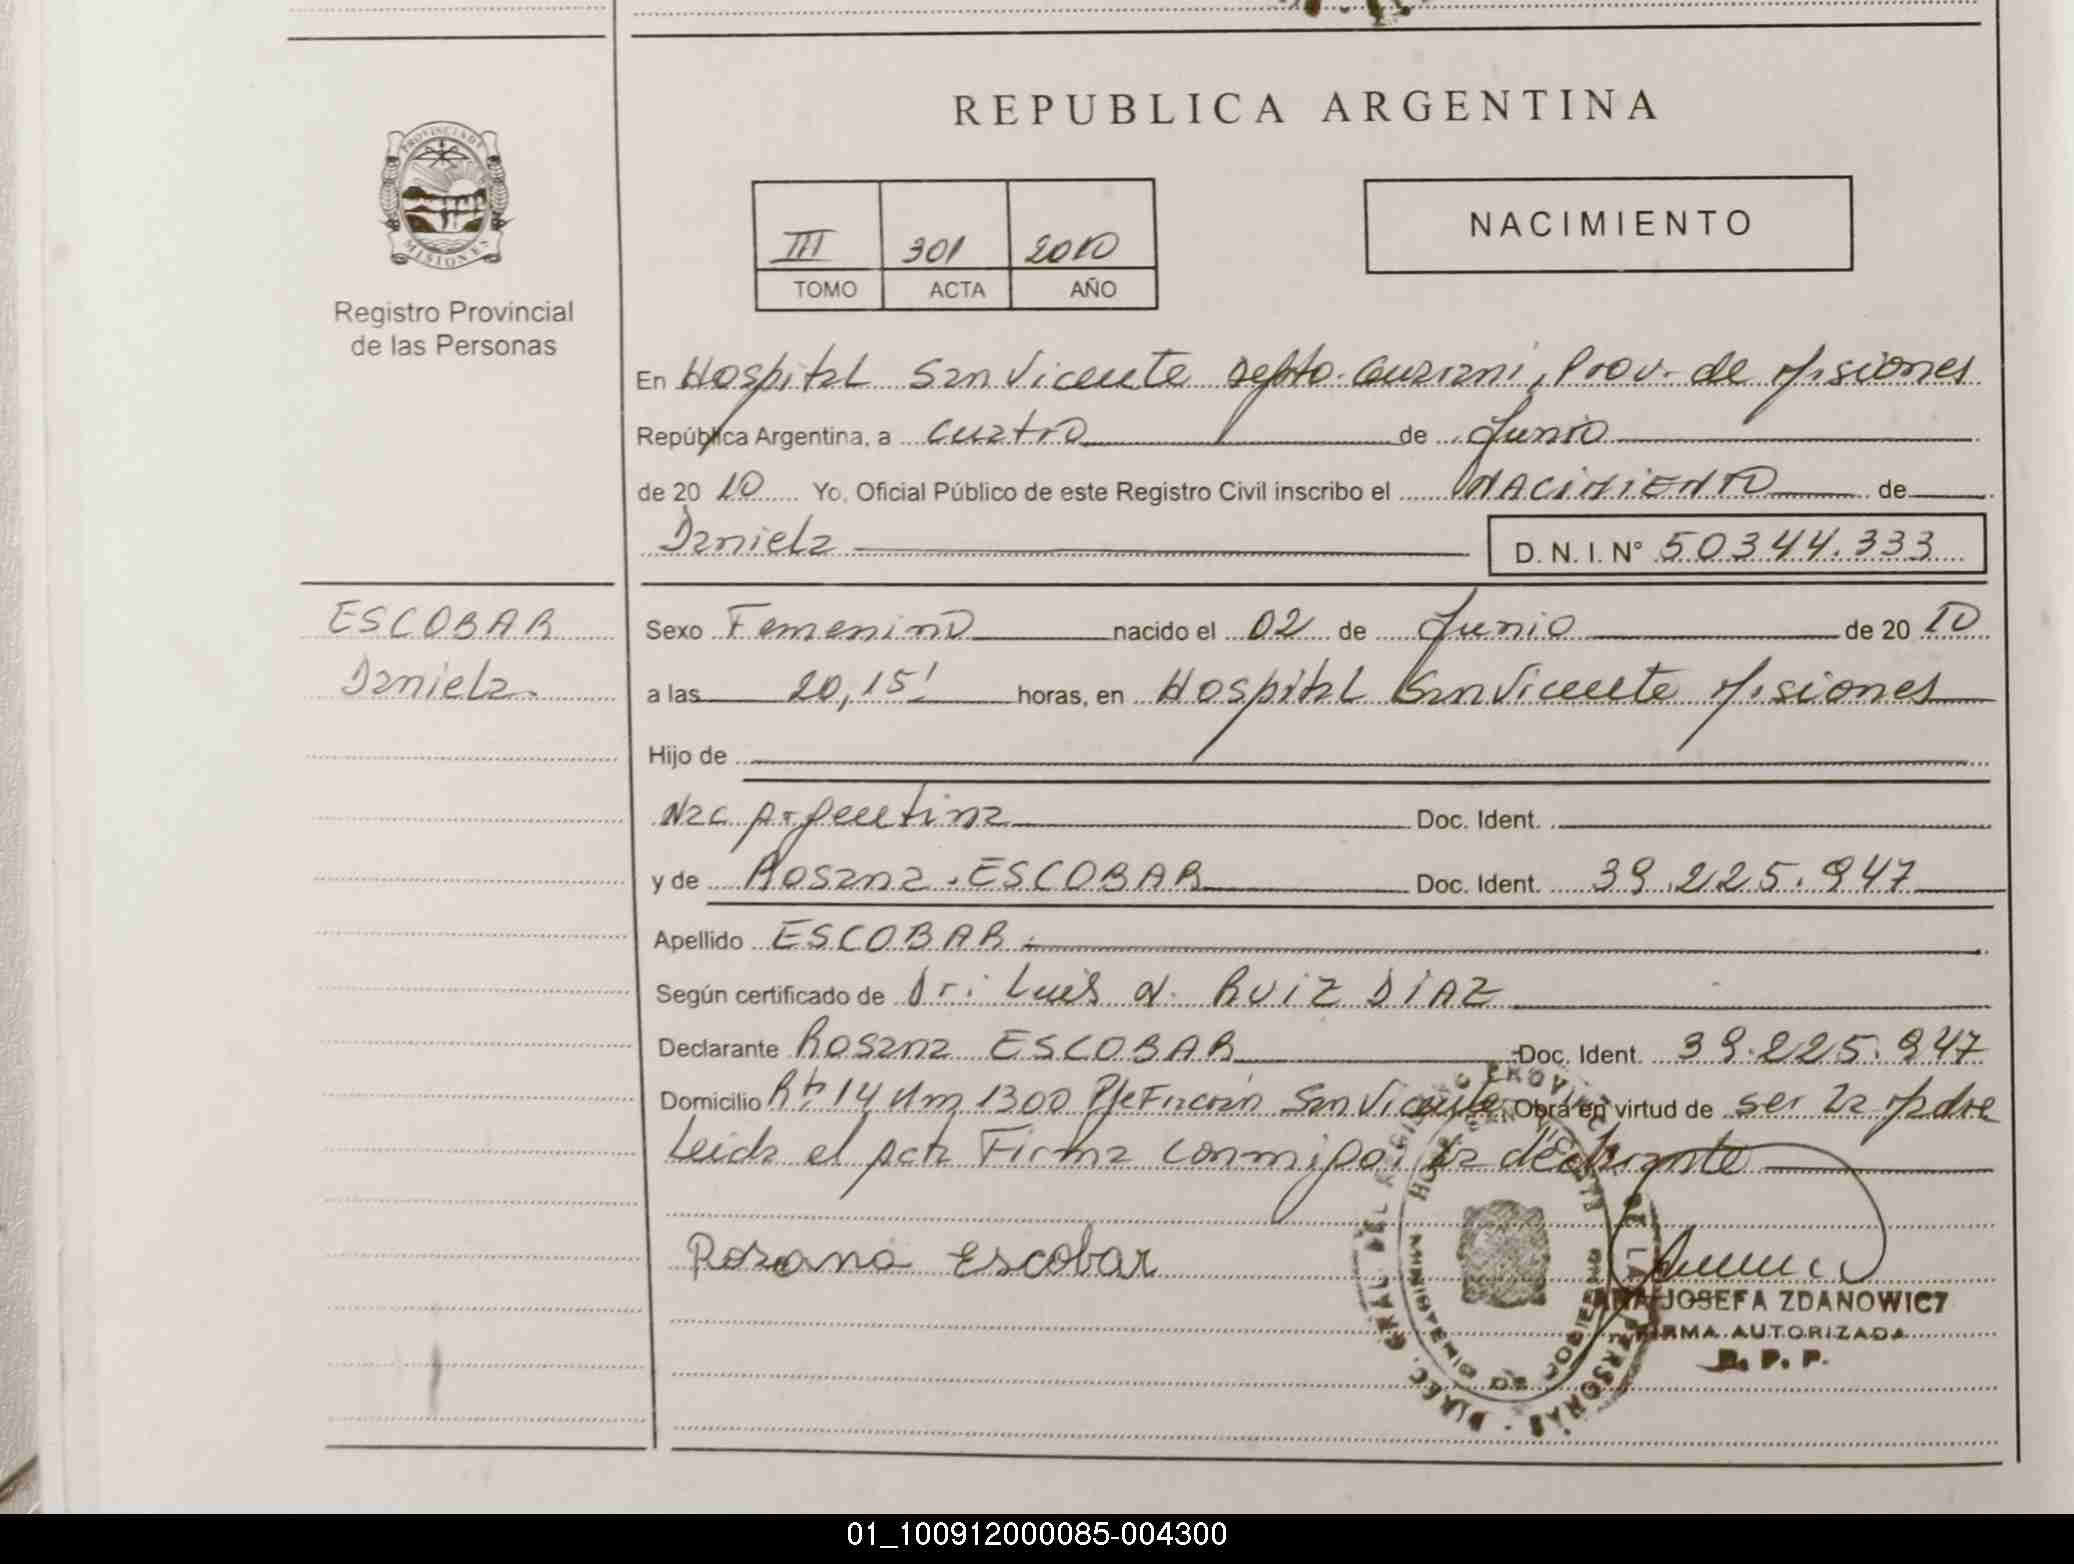 REPUBLICA ARGENTINA
PROVINCIA DE MISIONES
Registro Provincial
de las Personas
III 301 2010
TOMO ACTA AÑO
NACIMIENTO
En Hospital San Vicente Depto. Guarani, Prov. de Misiones
República Argentina, a cuatro de Junio
de 2010 Yo, Oficial Público de este Registro Civil inscribo el NACIMIENTO de
Daniela D. N. I. N° 50344.333
ESCOBAR
Daniela.
Sexo Femenino nacido el 02 de Junio de 2010
a las 20,15' horas, en Hospital San Vicente Misiones
Hijo de
Nac Argentina Doc. Ident.
y de Rosana ESCOBAR Doc. Ident. 39.225.947
Apellido ESCOBAR
Según certificado de Dr. Luis A. RUIZ DIAZ
Declarante Rosana ESCOBAR Doc. Ident. 39.225.947
Domicilio Rta 14 Km 1300 San Vicente Obra en virtud de ser la Madre
Leida el acta Firma conmigo la declarante
Rosana Escobar
DIREC. GRAL. DEL REGISTRO PROVINCIAL DE LAS PERSONAS
HOSP. SAN VICENTE
MINISTERIO DE GOBIERNO
ANA JOSEFA ZDANOWICZ
FIRMA AUTORIZADA
R. P. P.
01_100912000085-004300